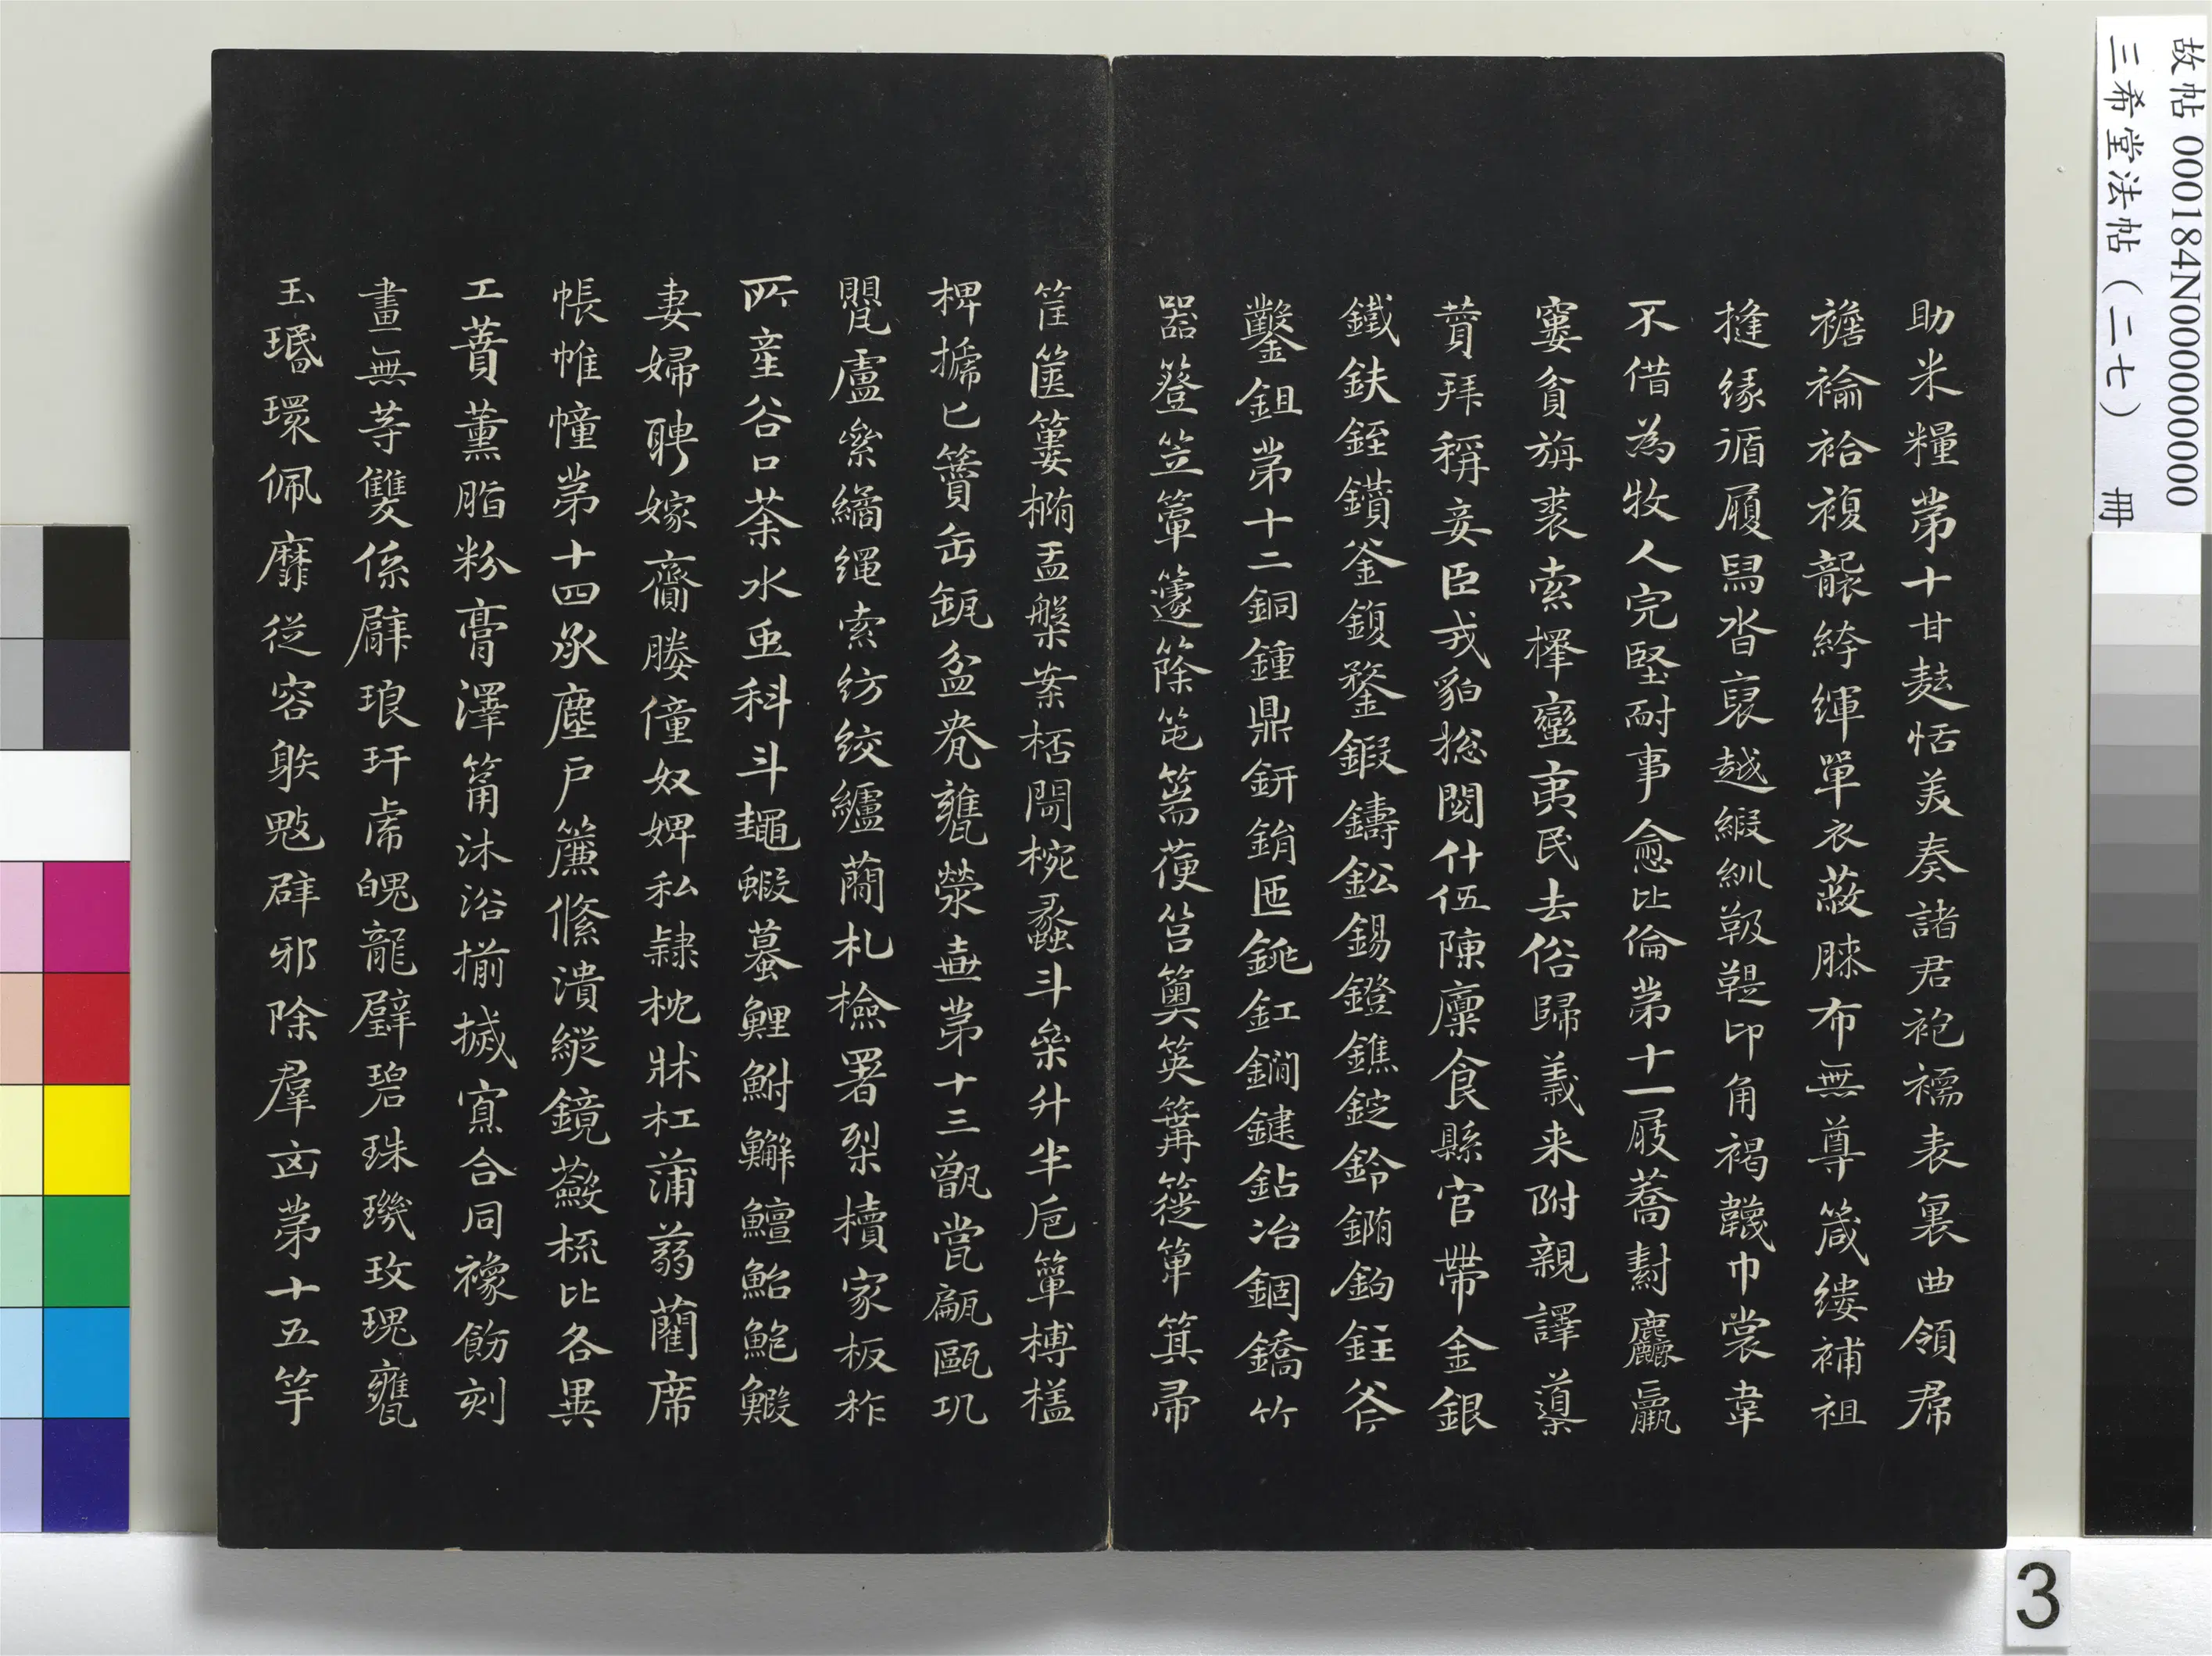 助米糧第十甘麩恬美奏諸君袍襦表裏曲領帬
襜褕袷複褶袴緷單衣蔽膝布無尊箴縷補袒
縫緣循履舄沓裒越緞紃靸鞮卬角褐韤巾裳韋
不借為牧人完堅耐事愈比倫第十一屐蕎䋽麤羸
窶貧旃裘索檡蠻夷民去俗歸義来附親譯導
贊拜稱妾臣戎貊總閱什伍陳廩食縣官帶金銀
鐵鈇銍鑽釜鍑鍪鍛鑄鈆錫鐙鐎錠鈴鏅鉤銍斧
鑿鉏第十二銅鍾鼎鈃鋗匜銚釭鐧鍵鉆冶錮鐈竹
器簦笠簟籧篨笔篅䓳筥䉛筴篝簁箪箕帚
筐篋簍椭盂槃案桮閜椀蠡斗參升半巵簞榑榼
椑榹匕籫缶缻盆甖甕㼆壺第十三甑甞甂甌㼚
甖盧絫繘繩索紡絞纑蕳札檢署槧櫝家板柞
所産谷口荼水䖝科斗䵷蝦蟇鯉鮒鱓鱣鮐鮑鰕
妻婦聘嫁齎媵僮奴婢私隸枕牀杠蒲蒻藺席
帳帷幢第十四承塵戸簾絛潰縱鏡籢梳比各異
工蕡薰脂粉膏澤筩沐浴揃搣寡合同襐飭刻
畫無等雙係臂琅玕虎魄龍璧碧珠璣玫瑰甕
玉瑿環佩靡從容躾鬽辟邪除羣凶第十五竽
故帖 000184N000000000
三希堂法帖（二七） 冊
3